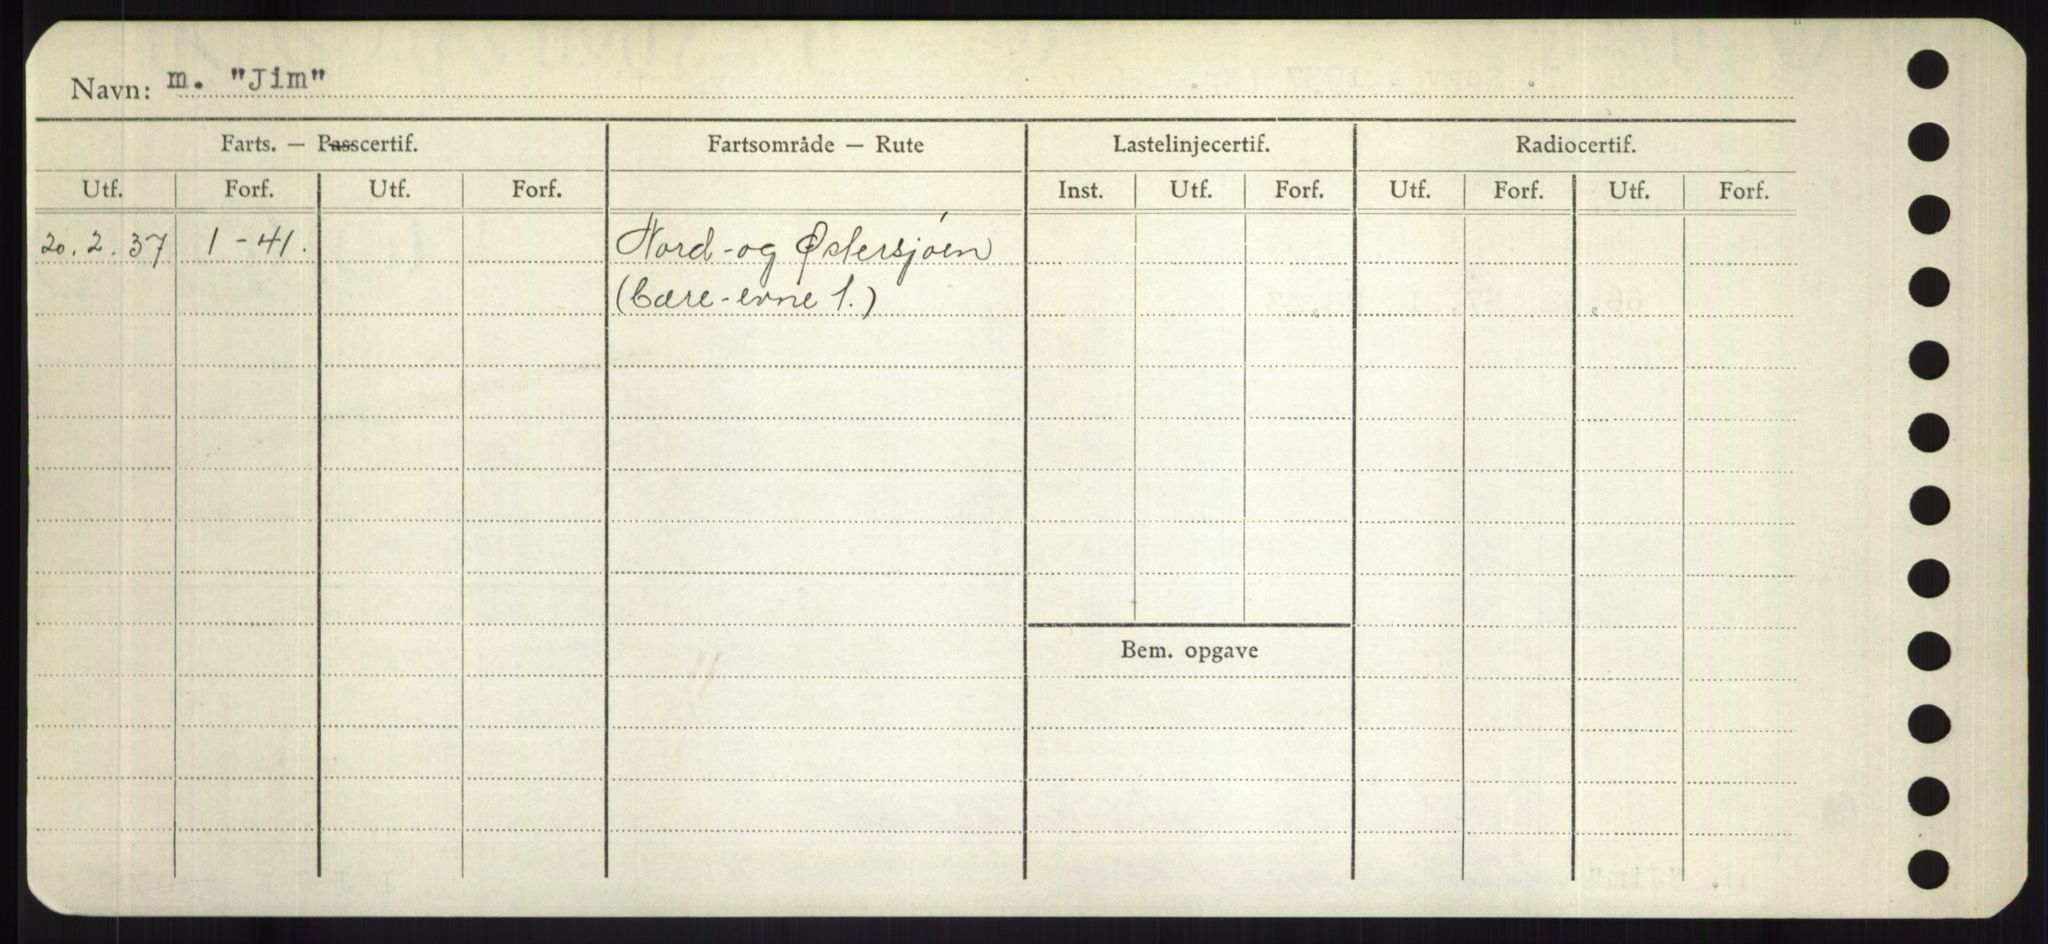 Navn: m. "Jim"
Farts. — Passcertif. Fartsområde — Rute Lastelinjecertif. Radiocertif.
Utf. Forf. Utf. Forf. Inst. Utf. Forf. Utf. Forf. Utf. Forf.
20.2.37 1-41. Nord-og Østersjøen
(bære-evne 1.)
Bem. opgave